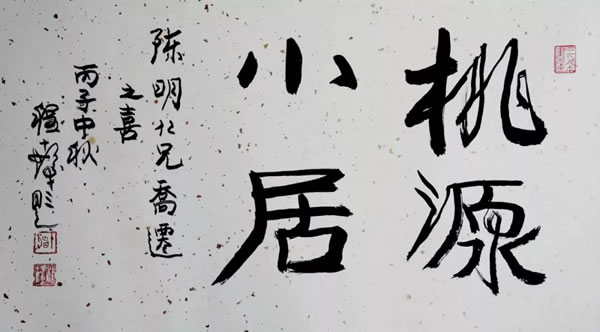 桃源
小居
陈明仁兄喬遷
之喜
丙子中秋